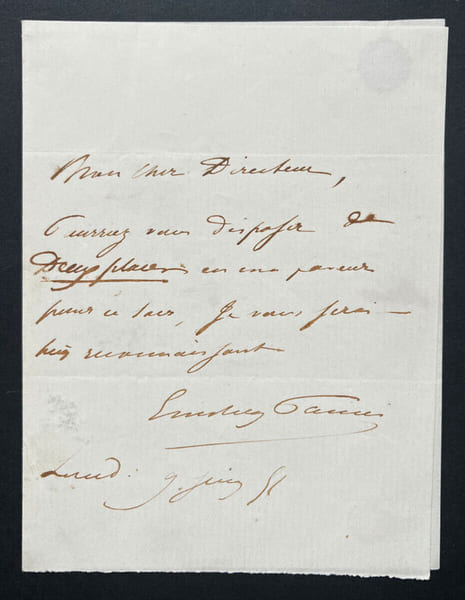 Mon cher Directeur,
Pourriez vous disposer de
Deux places en ma faveur
pour ce soir, Je vous serai
très reconnaissant
Lundi 9. Juin